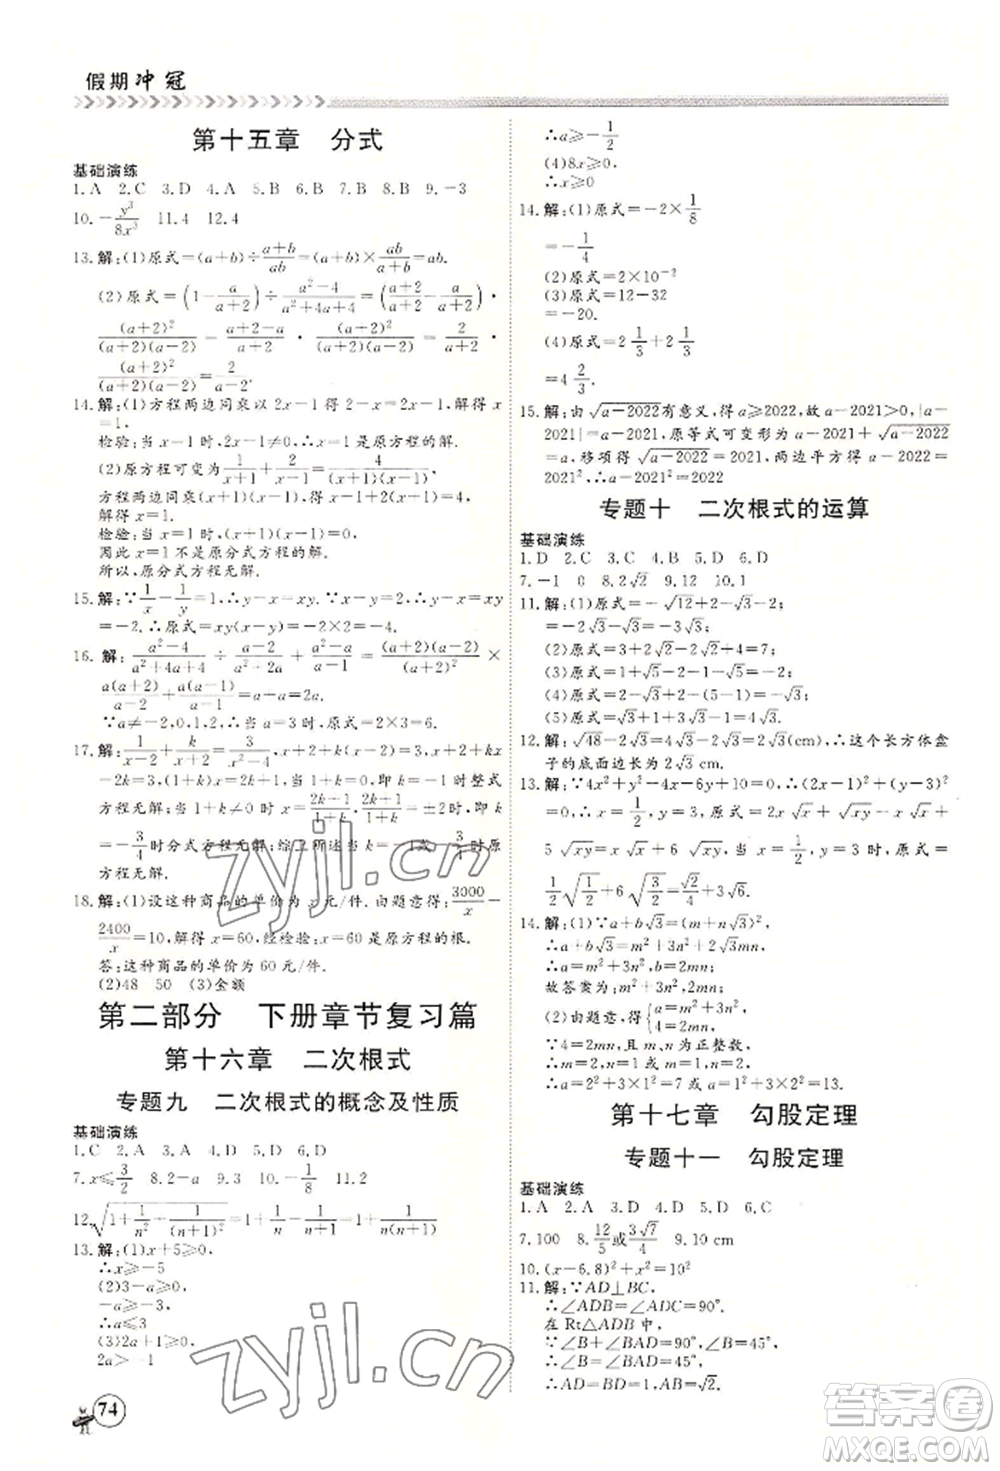 假期冲冠
第十五章　分式
基础演练
1.A 2.C 3.D 4.A 5.C 6.B 7.B 8.B 9.-3
10.-y³/8x³ 11.4 12.4
13.解:(1)原式=(a+b)÷(a+b)/ab=(a+b)×ab/(a+b)=ab.
(2)原式=(1-a/(a+2))÷(a²-4)/(a²+4a+4)=((a+2)/(a+2)-a/(a+2))
·(a+2)²/((a+2)(a-2))=(a+2-a)/(a+2)·(a+2)²/((a+2)(a-2))=2/(a+2)·
(a+2)²/((a+2)(a-2))=2/(a-2)
14.解:(1)方程两边同乘以2x-1得x-2=2x-1,解得x
=-1.
检验:当x=-1时,2x-1≠0,x=-1
(2)原方程可变为1/(x+1)+1/(x-1)=2/((x+1)(x-1)).
方程两边同乘(x+1)(x-1)得(x-1)+(x+1)=2.
解得x=1.
检验:当x=1时,(x+1)(x-1)=0.
因此x=1不是原分式方程的解.
所以,原分式方程无解.
15.解:∵1/x-1/y=1,∴y-x=xy.∵xy=-2,∴y-x=xy
=-2.∴原式=xy(x-y)=-2×2=-4
16.解:(a²-4)/(a²+4a+4)÷(a-2)/(a²+2a)-2a=(a+2)(a-2)/(a+2)²×
a(a+2)/(a-2)-2a=a-2a=-a
∵a≠-2,0,1,2,∴当a=3时,原式=2×3=6.
17.解:1/x+k/(x-1)=3/(x(x-1)),x-1+kx+k=3x+2+kx
-2k=3,(k+1)x=2k-1.①即k+1=0即k=-1时整式
方程无解.②当k+1≠0时,x=(2k-1)/(k+1)=±2时,即k=
-3/4时分式方程无解;综上所述当k=-1或k=-3/4时原
方程无解.
18.解:(1)设这种商品的单价为x元/件.由题意得:3000/x-
2400/x=10,解得:x=60,经检验:x=60是原方程的根.
答:这种商品的单价为60元/件.
(2)48 50 (3)金额
第二部分　下册章节复习篇
第十六章　二次根式
专题九　二次根式的概念及性质
基础演练
1.C 2.A 3.A 4.B 5.D 6.A
7.x≤3/2 8.2-a 9.3 10.-1/8 11.-4
12.√(1+1/n²+1/(n+1)²)=1+1/n-1/(n+1)=1+1/(n(n+1))
13.解:(1)x+5≥0,
∴x≥-5
(2)3-a≥0,
-a≥-3,
∴a≤3
(3)2a+1≥0,
2a≥-1
74
∴a≥-1/2
(4)8x≥0,
∴x≥0
14.解:(1)原式=-2×1/8
=-1/4
(2)原式=2×10⁻¹
(3)原式=12-32
=-20.
(4)原式=2 1/3+2 1/3
=4 2/3.
15.解:由√(a-2022)有意义,得a≥2022,故a-2021>0,|a-
2021|=a-2021,原等式可变形为a-2021+√(a-2022)
=a,移项得√(a-2022)=2021,两边平方得a-2022=
2021²,∴a-2021²=2022
专题十　二次根式的运算
基础演练
1.D 2.C 3.C 4.B 5.D 6.D
7.-1 0 8.2√2 9.12 10.1
11.解:(1)原式=-√12+2-√3-2;
=-2√3-√3=-3√3;
(2)原式=2√3-2√3+3+4=7;
(3)原式=√2+1-2=√2-1;
(4)原式=2-1-(5-1)=-3;
(5)原式=√3+1-√3-1+2=2.
12.解:√48-2√3=2√3(cm),∴这个长方体盒
子的底面边长为2√3 cm.
13.解:∵4x²+y²-4x-6y+10=0,∴(2x-1)²+(y-3)²
=0,∴x=1/2,y=3,∴原式=2x√x+√xy-x√x+
5√xy=x√x+6√xy,当x=1/2,y=3时,原式=
1/2×√(1/2)+6√(3/2)=√2/4+3√6.
14.解:(1)∵a+b√3=(m+n√3)²,
∴a+b√3=m²+3n²+2mn√3,
∴a=m²+3n²,b=2mn;
故答案为:m²+3n²;2mn;
(2)由题意,得{a=m²+3n² 4=2mn,
∵4=2mn,且m、n为正整数,
∴m=2,n=1或m=1,n=2,
∴a=7或13.
第十七章　勾股定理
专题十一　勾股定理
基础演练
1.A 2.A 3.A 4.D 5.D 6.C
7.100 8.12/5或3√7/4 9.10 cm
10.(x-6.8)²+x²=10²
11.解:∵AD⊥BC,
∴∠ADB=∠ADC=90°.
在Rt△ADB中
∵∠B+∠BAD=90°,∠B=45°,
∴∠B=∠BAD=45°,
∴AD=BD=1,AB=√2.
zyjl.cn
zyjl.cn
答案圈
MXQE.COM